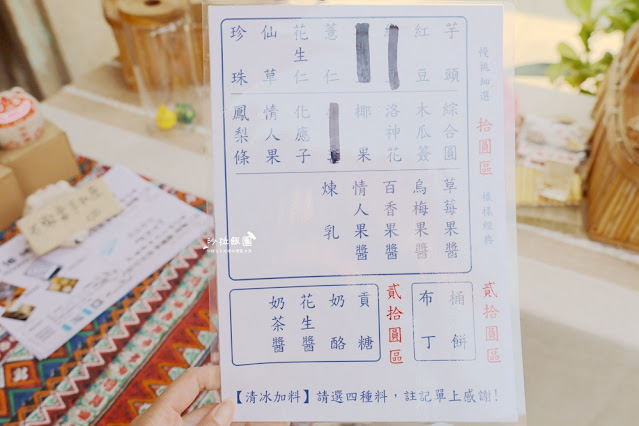 慢挑細選
拾圓區
樣樣經典
芋頭
紅豆
薏仁
花生仁
仙草
珍珠
綜合圓
木瓜簽
洛神花
椰果
化應子
情人果
鳳梨條
草莓果醬
烏梅果醬
百香果醬
情人果醬
煉乳
貳拾圓區
桶餅
布丁
貳拾圓區
貢糖
奶酪
花生醬
奶茶醬
【清冰加料】請選四種料，註記單上感謝!